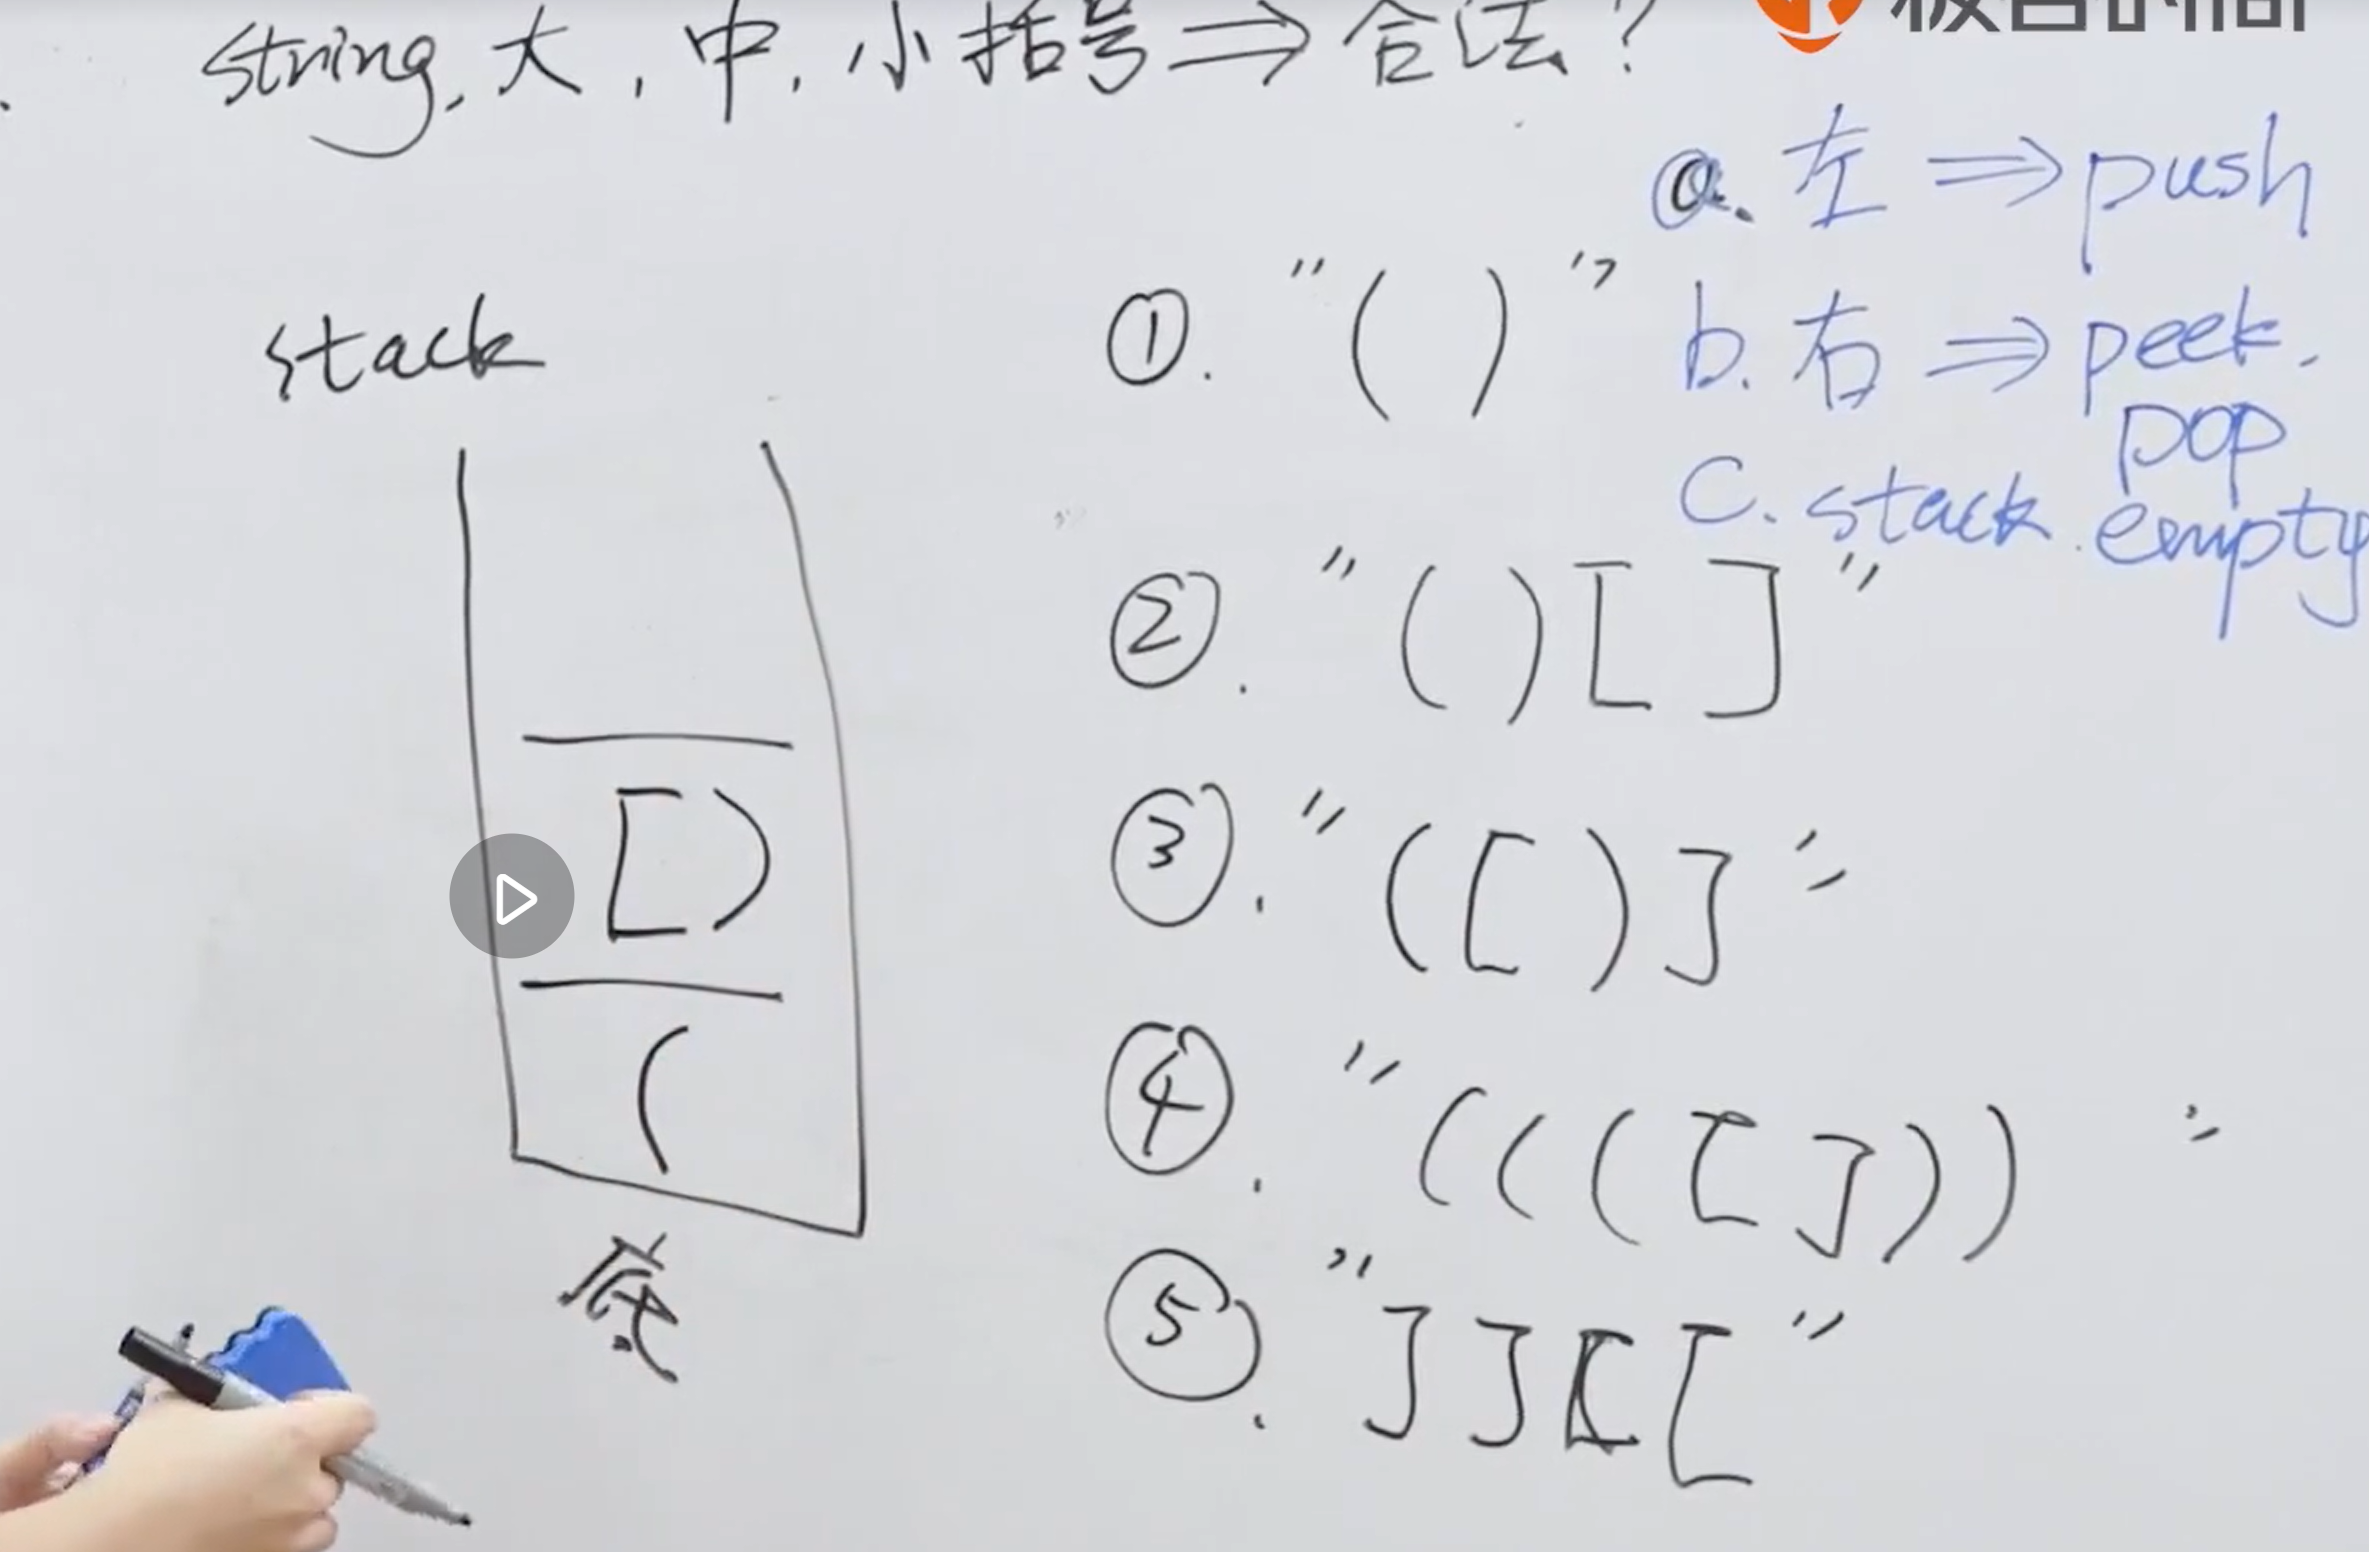 string, 大, 中, 小括号 ⇒ 合法?
极客时间
a. 左 ⇒ push
b. 右 ⇒ peek.
pop
c. stack. empty
stack
[ )
(
底
①. "( )"
②. "( ) [ ]"
③. "( [ ) ]"
④. "( ( ( [ ] ) ) "
⑤. "] ] [ ["